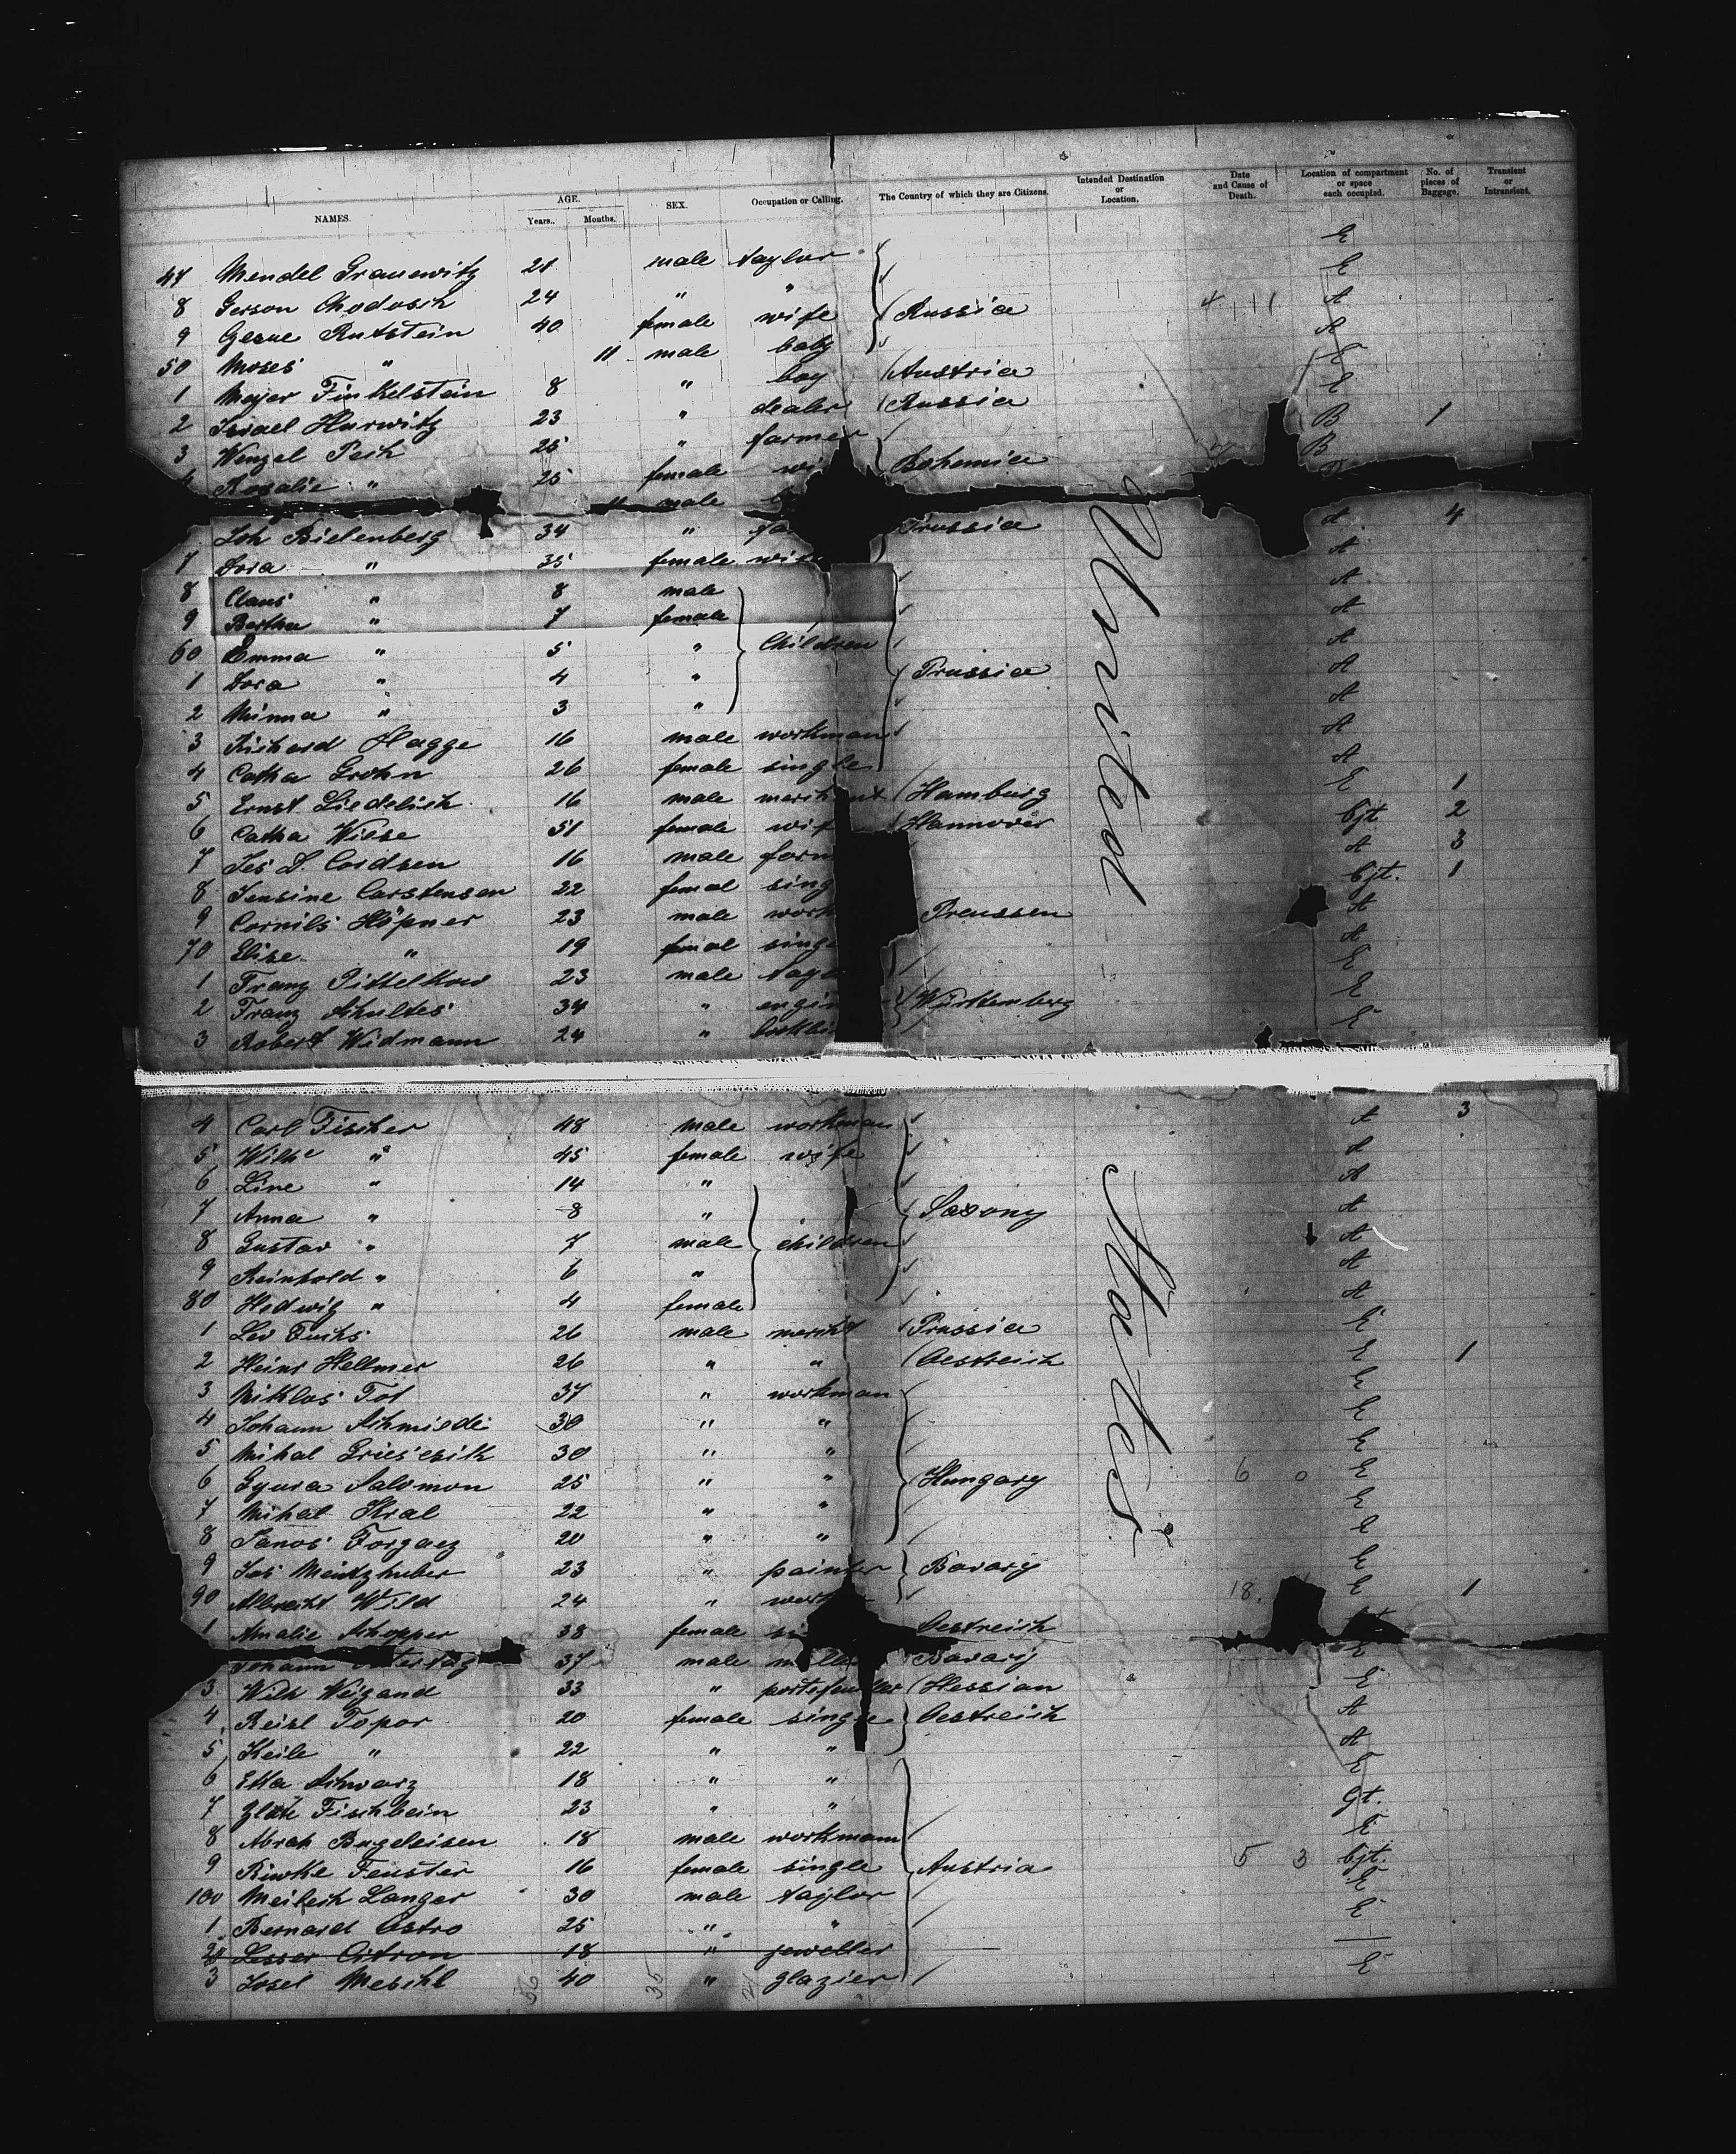 NAMES. AGE. Years. Months. SEX. Occupation or Calling. The Country of which they are Citizens. Intended Destination or Location. Date and Cause of Death. Location of compartment or space each occupied. No. of pieces of Baggage. Transient or Intransient.
47 Mendel 21 male taylor E
8 Gerson Chodosch 24 " " E
9 Rutstein 40 female wife Russia A
50 Moses " 11 male baby A
1 Meyer Finkelstein 8 " boy Austria E
2 Israel Hurwitz 23 " dealer Russia E
3 Wenzel Pech 25 " farmer B 1
Rosalie " 25 female Bohemia B
11 male
Joh Bielenberg 34 " Prussia A 4
7 Dora " 35 female A
8 Claus " 8 male A
9 Bertha " 7 female A
60 Emma " 5 " Children A
1 Dora " 4 " Prussia A
2 Minna " 3 " A
3 Richard Hagge 16 male workman A
4 Catha Grohn 26 female single A
5 Ernst 16 male merchant Hamburg E 1
6 Catha Wiese 51 female Hannover bjt 2
7 Jes D. Cordsen 16 male A 3
8 Jensine Carstensen 22 femal bjt. 1
9 Cornils Höpner 23 male Preussen A
70 Elise " 19 femal A
1 Franz Pittelkow 23 male E
2 Franz Schultes 34 " Württemberg E
3 Robert Widmann 24 " E
4 Carl Fischer 48 male workman A 3
5 Wilhe " 45 female wife A
6 Line " 14 " A
7 Anna " 8 " Saxony A
8 Gustav " 7 male children A
9 Reinhold " 6 " A
80 Hedwig " 4 female A
1 Leo Fuchs 26 male mercht Prussia E
2 Heinr Hellmer 26 " " Oestreich E 1
3 Miklos Tot 37 " workman E
4 Johann 30 " " E
5 Mihal 30 " " E
6 Gyura Salomon 25 " " Hungary 6 0 E
7 Mihal Kral 22 " " E
8 Janos Forgacz 20 " " E
9 Jos 23 " painter Bavary E
90 Albrecht Wild 24 " 18. E 1
1 Amalie Schopper 38 female Oestreich
Johann 37 male Bavary E
3 Wilh Weigand 33 " Hessian E
4 Reisl Topor 20 female single Oestreich A
5 Keile " 22 " " A
6 Etta Schwarz 18 " " E
7 Zlate Fischbein 23 " " gt.
8 Abrah Bugeleisen 18 male workmann E
9 Riwke Fenster 16 female single Austria 5 3 bjt.
100 Meilech Langer 30 male taylor E
1 Bernard Ostro 25 " " E
2 Lesser Citron 18 " jeweller —
3 Josel 40 " glazier E
56 35 21
United
States